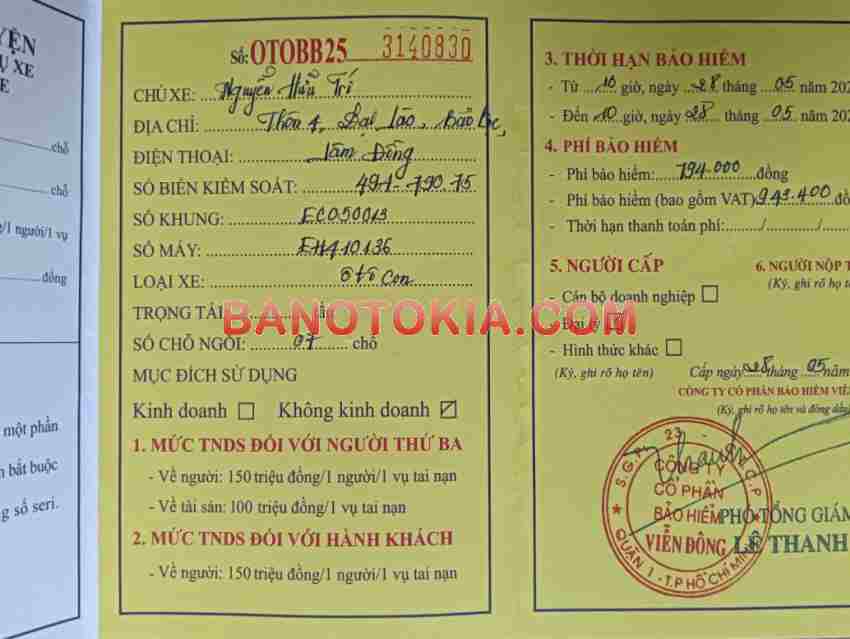 YỆN
Ụ XE
E
chỗ
chỗ
/1 người/1 vụ
đồng
một phần
bắt buộc
g số seri.
Số: OTOBB25 3140830
CHỦ XE: Nguyễn Hữu Trí
ĐỊA CHỈ: Thôn 4, Đại Lào, Bảo Lộc,
ĐIỆN THOẠI: Lâm Đồng
SỐ BIỂN KIỂM SOÁT: 49A-790.75
SỐ KHUNG: EC050013
SỐ MÁY: EH410136
LOẠI XE: Ôtô con
TRỌNG TẢI: tấn
SỐ CHỖ NGỒI: 07 chỗ
MỤC ĐÍCH SỬ DỤNG
Kinh doanh ☐ Không kinh doanh ☑
1. MỨC TNDS ĐỐI VỚI NGƯỜI THỨ BA
- Về người: 150 triệu đồng/1 người/1 vụ tai nạn
- Về tài sản: 100 triệu đồng/1 vụ tai nạn
2. MỨC TNDS ĐỐI VỚI HÀNH KHÁCH
- Về người: 150 triệu đồng/1 người/1 vụ tai nạn
3. THỜI HẠN BẢO HIỂM
- Từ 10 giờ, ngày 28 tháng 05 năm 202
- Đến 10 giờ, ngày 28 tháng 05 năm 202
4. PHÍ BẢO HIỂM
- Phí bảo hiểm: 794.000 đồng
- Phí bảo hiểm (bao gồm VAT) 943.400 đồ
- Thời hạn thanh toán phí: / /
5. NGƯỜI CẤP 6. NGƯỜI NỘP T
(Ký, ghi rõ họ t
- Cán bộ doanh nghiệp ☐
- Đại lý
- Hình thức khác ☐
(Ký, ghi rõ họ tên) Cấp ngày 28 tháng 05 năm
CÔNG TY CỔ PHẦN BẢO HIỂM VIỄ
(Ký, ghi rõ họ tên và đóng dấu
CÔNG TY
CỔ PHẦN
BẢO HIỂM
VIỄN ĐÔNG
QUẬN 1 - T.P HỒ CHÍ MINH
PHÓ TỔNG GIÁM
LÊ THANH
BANOTOKIA.COM